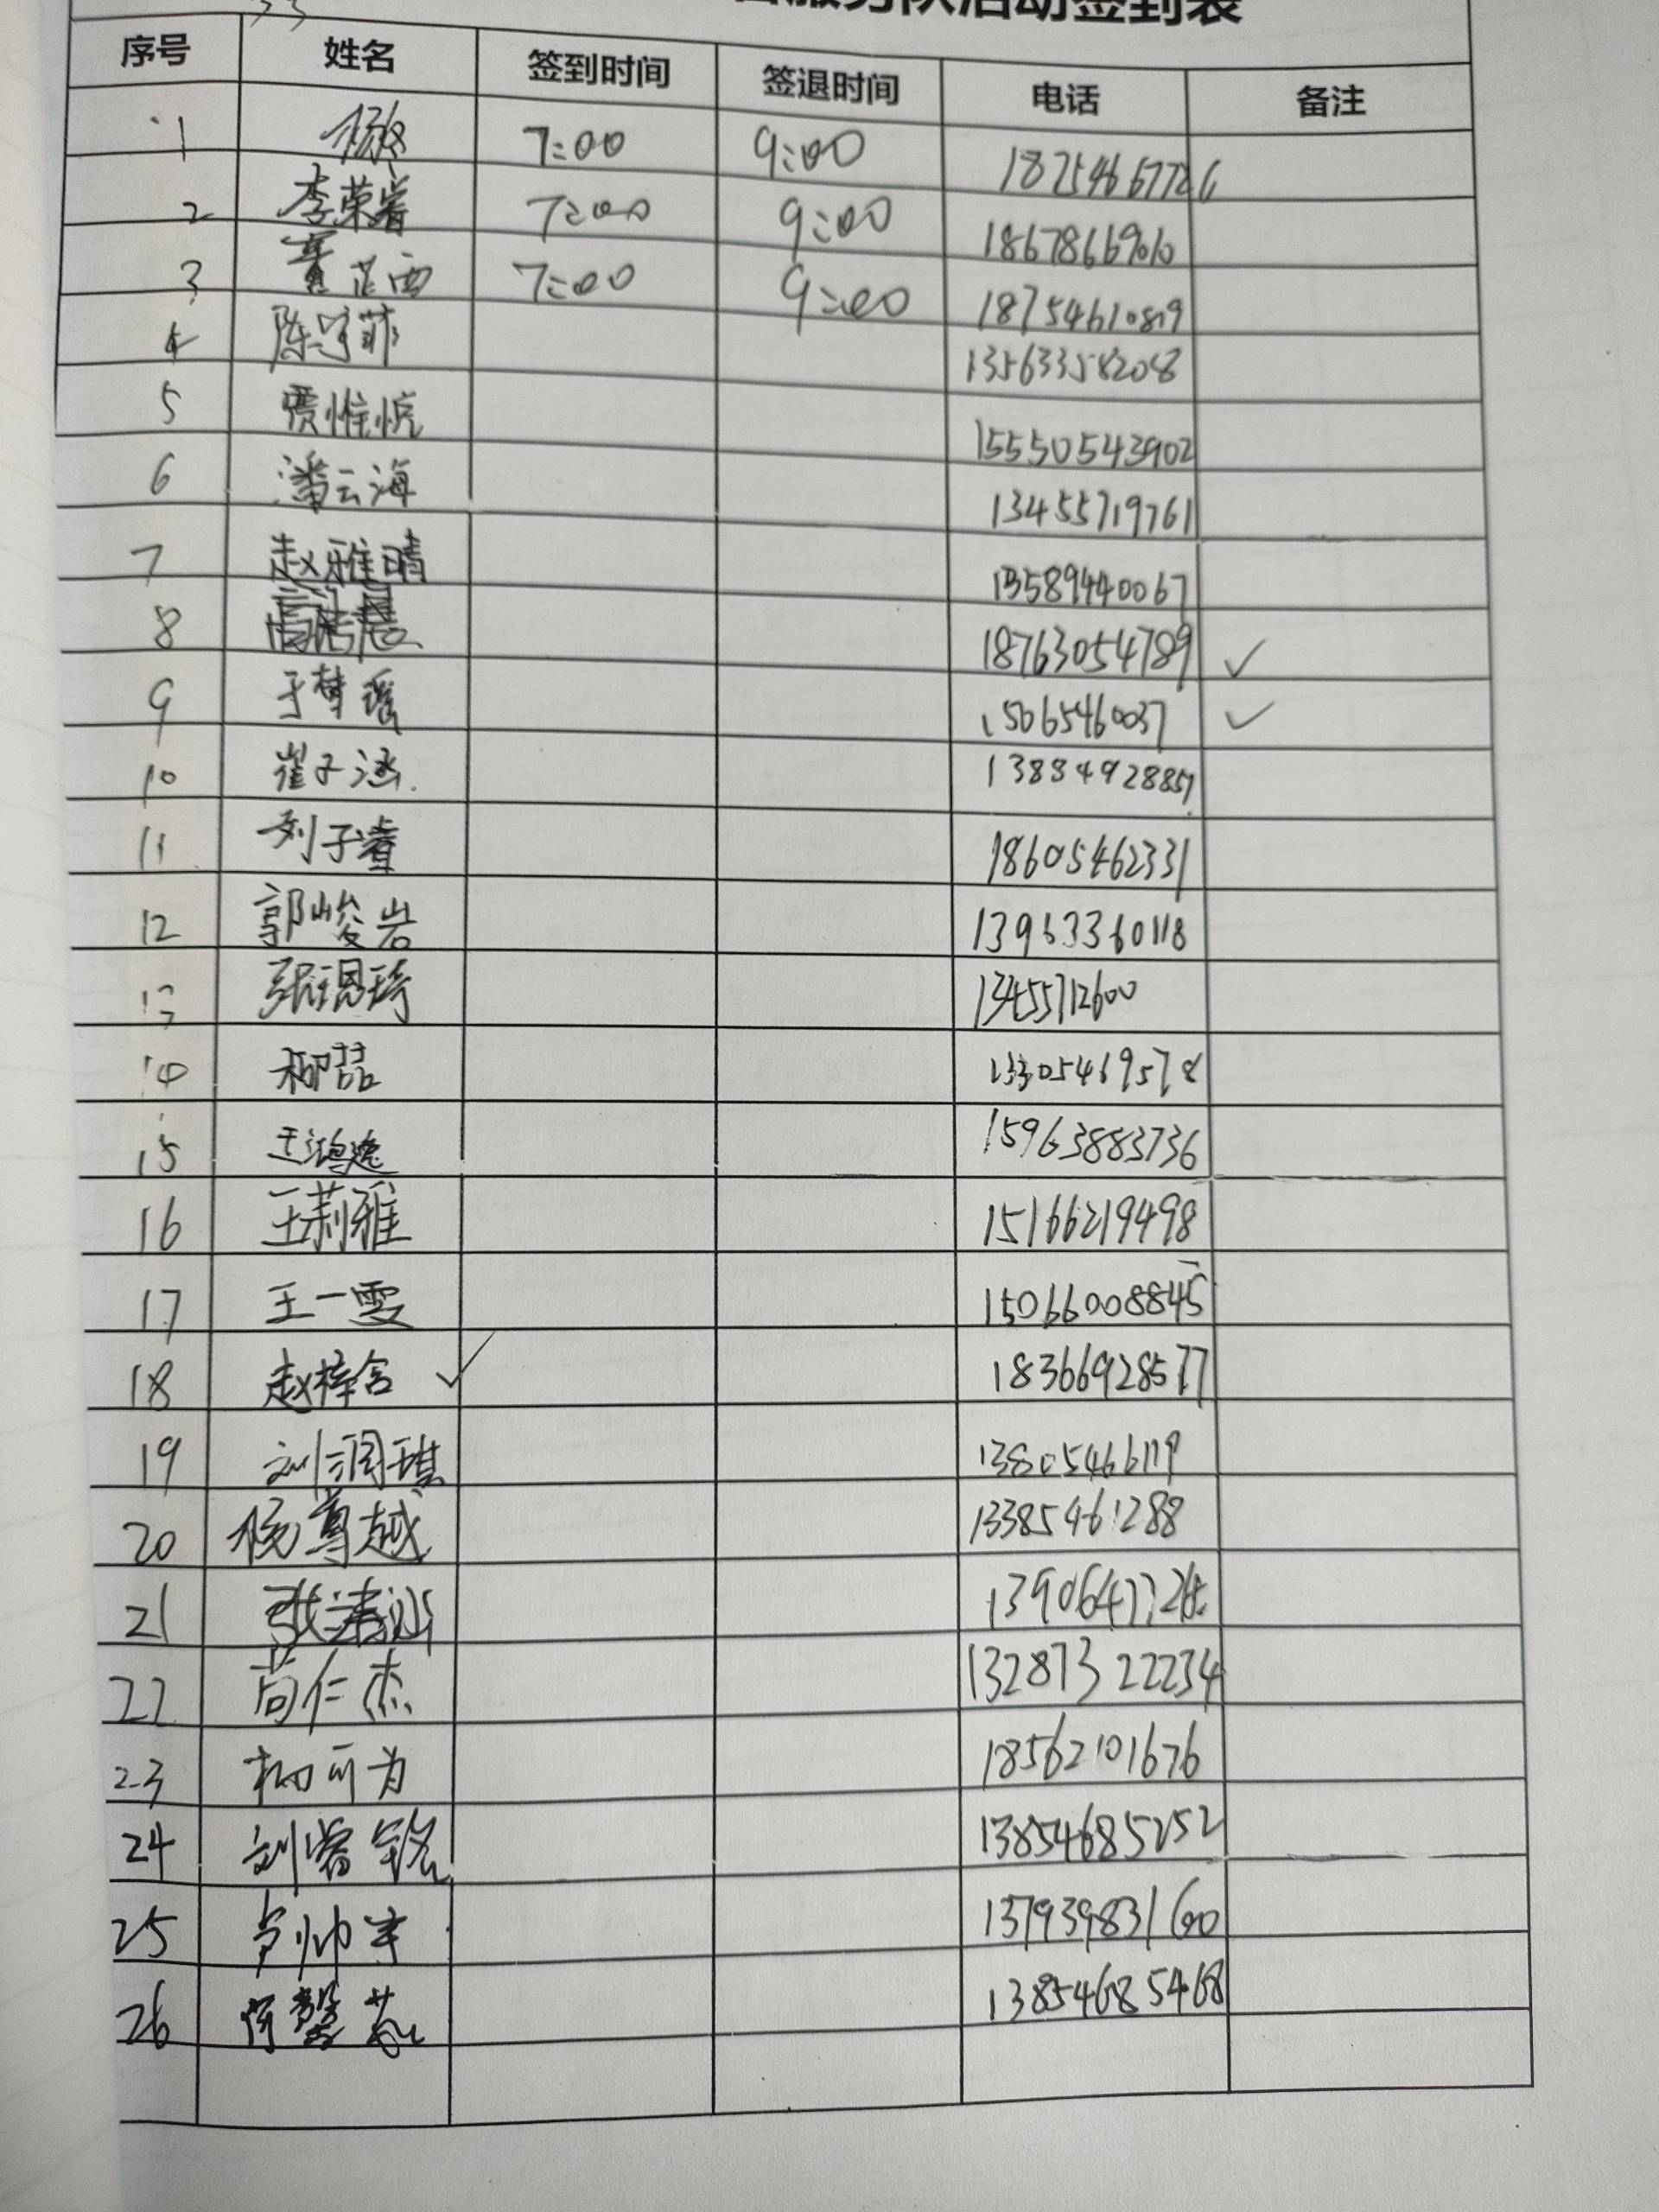 服务队活动签到表
序号 姓名 签到时间 签退时间 电话 备注
1 7:00 9:00 18254667726
2 李荣睿 7:00 9:00 18678669010
3 7:00 9:00 18754610819
4 陈宇菲 13563358208
5 贾惟悦 15550543902
6 潘云海 13455719761
7 赵雅晴 13589440067
8 高浩晨 18763054789 ✓
9 于梦瑶 15065460037 ✓
10 崔子涵 13884928857
11 刘子睿 18605462331
12 郭峻岩 13963360118
13 张恩琦 13455712600
14 柳喆 13305469578
15 王鸿逸 15963883736
16 王莉雅 15166219498
17 王一雯 15066008845
18 赵梓含 ✓ 18366928577
19 刘润琪 13805466119
20 杨尊越 13385461288
21 张
22 苟仁杰 13287322234
23 柳可为 18562101676
24 刘睿铭 13854685252
25 卢帅宇 13793983160
26 何馨蕊 13854685468